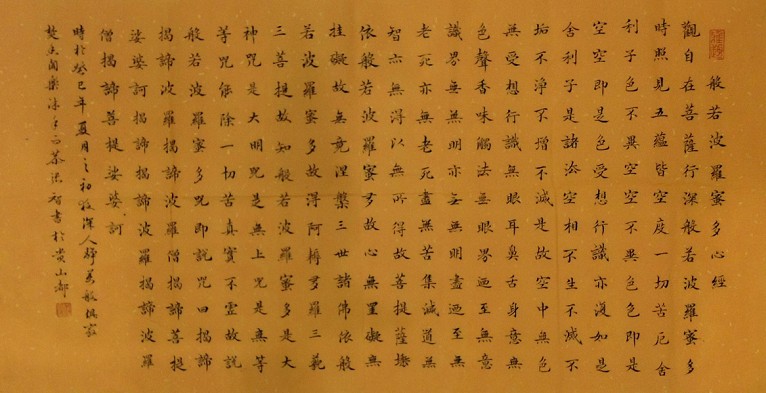 般若波羅蜜多心經
觀自在菩薩行深般若波羅蜜多
時照見五蘊皆空度一切苦厄舍
利子色不異空空不異色色即是
空空即是色受想行識亦復如是
舍利子是諸法空相不生不滅不
垢不淨不增不減是故空中無色
無受想行識無眼耳鼻舌身意無
色聲香味觸法無眼界迺至無意
識界無無明亦無無明盡迺至無
老死亦無老死盡無苦集滅道無
智亦無得以無所得故菩提薩埵
依般若波羅蜜多故心無罣礙無
挂礙故無竟涅槃三世諸佛依般
若波羅蜜多故得阿耨多羅三藐
三菩提故知般若波羅蜜多是大
神咒是大明咒是無上咒是無等
等咒能除一切苦真實不虛故說
般若波羅蜜多咒即說咒曰揭諦
揭諦波羅揭諦波羅僧揭諦菩提
娑婆訶揭諦揭諦波羅揭諦波羅
僧揭諦菩提娑婆訶
時於癸巳年夏月之初夜深人靜萬般俱寂
焚香聞樂沐手書於